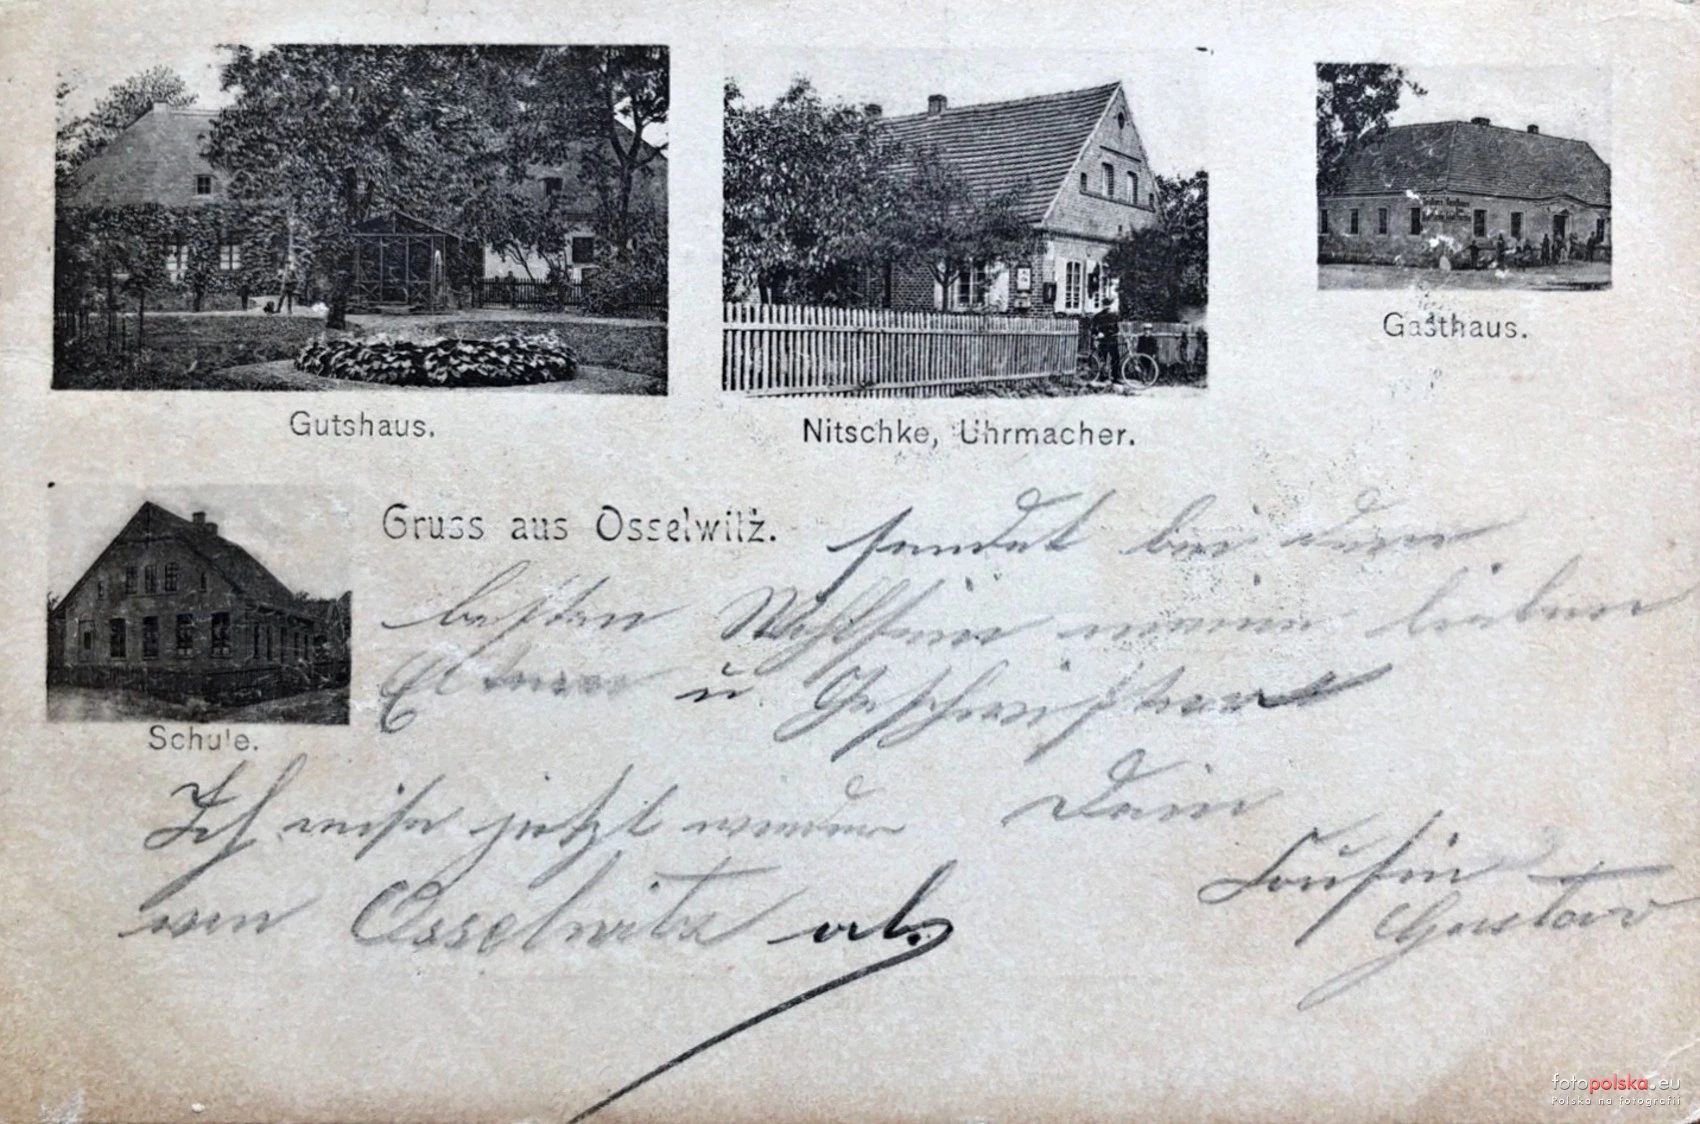 Gutshaus.
Nitschke, Uhrmacher.
Gasthaus.
Schule.
Gruss aus Osselwitz.
sendet bei dem
besten Wohlsein meine lieben
Eltern u Geschwistern
Ich reise jetzt wieder
von Osselwitz ab.
Dein
Cousin
Gustav
fotopolska.eu
Polska na fotografii